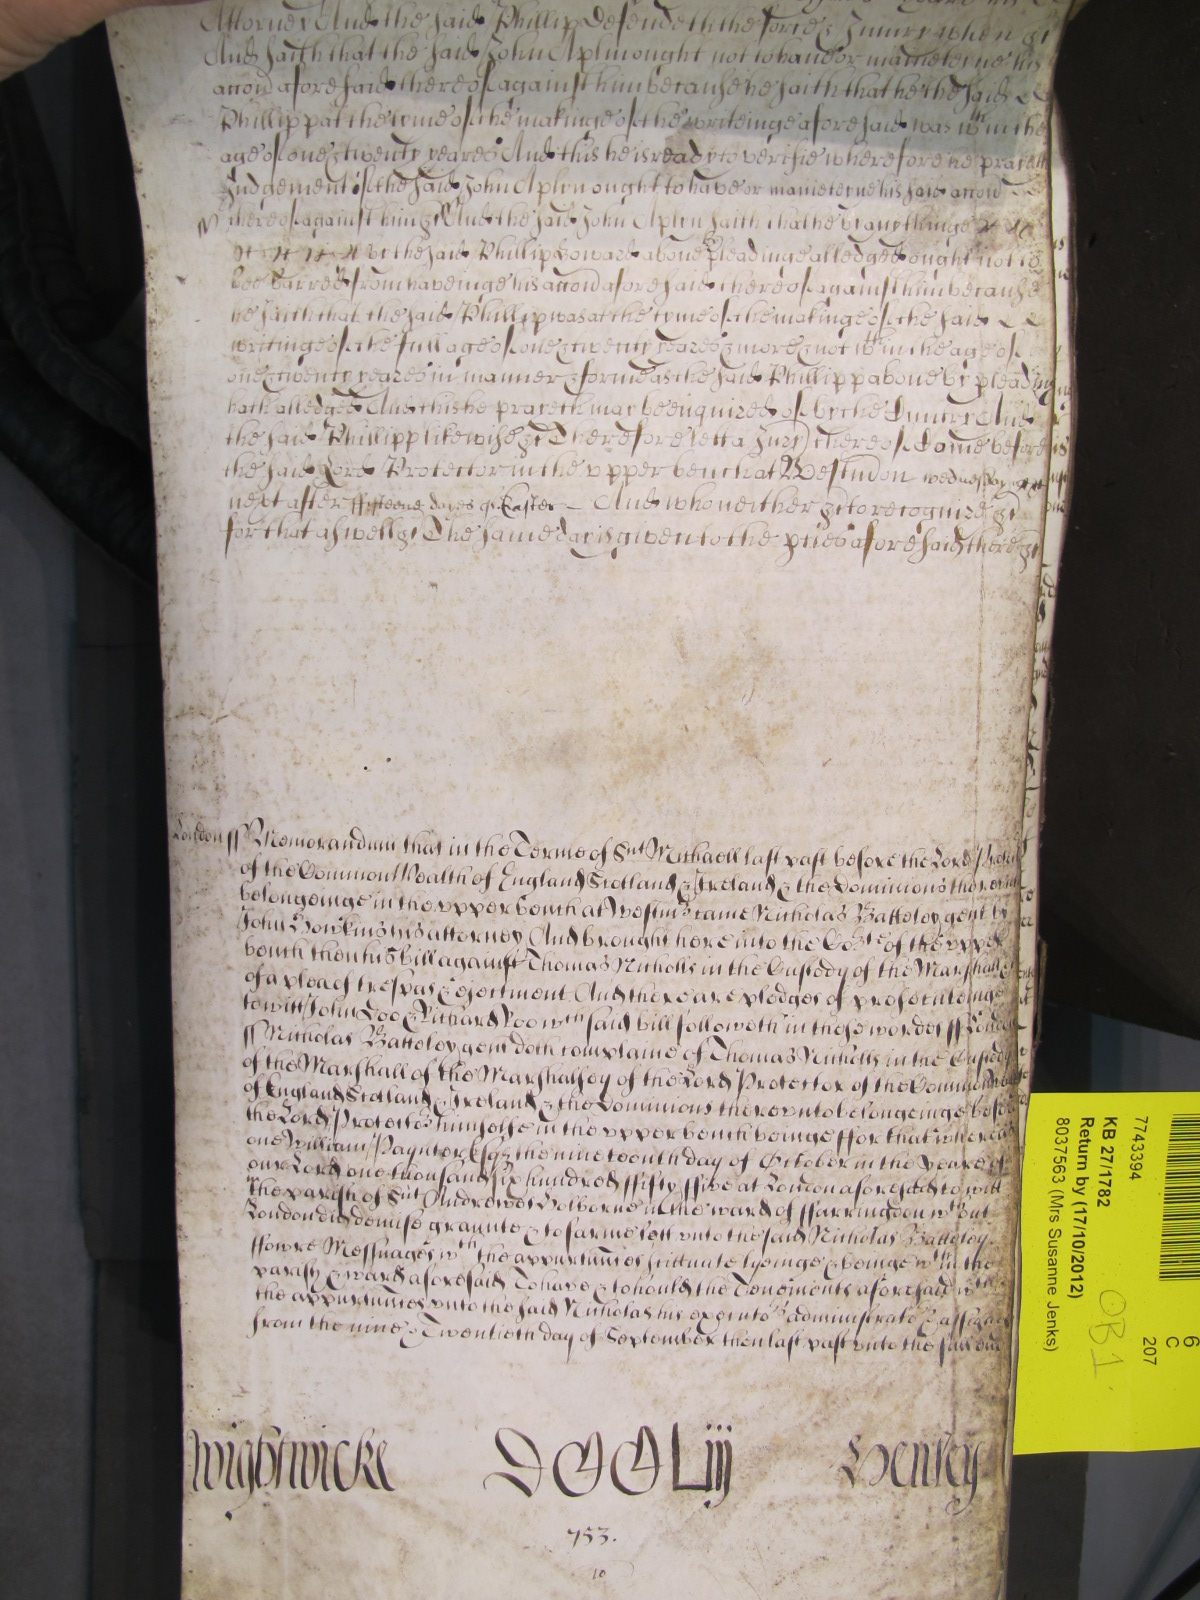 Attorney And the said Phillip defendeth the force & Iniury when &c
And saith that the said John Aplen ought not to have or mainteine his
accon aforesaid thereof against him because he saith that he the said
Phillipp at the tyme of the makinge of the writeinge aforesaid was wthin the
age of one & twenty yeares And this he is ready to verifie wherefore he prayeth
Iudgement if the said John Aplen ought to have or mainteine his said accon
thereof against him &c And the said John Aplen saith that he by any thinge
by the said Phillip Howard above by pleadinge alledged ought not to
bee barred from haveinge his accon aforesaid thereof against him because
he saith that the said Phillipp was at the tyme of the makinge of the said
writinge of the full age of one & twenty yeares & more & not wthin the age of
one & twenty yeares in manner & forme as the said Phillipp above by pleading
hath alledged And this he prayeth may be enquired of by the Cuntry And
the said Phillipp likewise &c Therefore lett a Iury thereof Come before
the said Lord Protector in the upper bench at Westm on wednesday
next after fifteene dayes of Easter And who neither &c to recognize &c
for that aswell &c The same day is given to the pties aforesaid there &c
London ss Memorandum that in the Terme of Snt Michaell last past before the Lord
of the Common Wealth of England Scotland & Ireland & the Dominions
belongeinge in the upper bench at Westmr came Nicholas Batteley gent by
John Howkins his attorney And brought here into the Court of the upper
bench then his bill against Thomas Nicholls in the Custody of the Marshall
of a plea of trespas & eiectment And there are pledges of prosecuteinge
to witt John Doo & Richard Roo wch said bill followeth in these wordes ss London
ss Nicholas Batteley gent doth complaine of Thomas Nicholls in the Custody
of the Marshall of the Marshalsey of the Lord Protector of the Common
of England Scotland & Ireland & the Dominions thereunto belongeinge before
the Lord Protector himselfe in the upper bench beinge ffor that whereas
one William Paynter Esqr the nineteenth day of October in the yeare of
our Lord one thousand six hundred ffifty ffive at London aforesaid to witt
in the parish of Snt Andrewes Holborne in the ward of ffarringdon wthout
London did demise graunte & to farme lett unto the said Nicholas Batteley
ffowre Messuages wth the appurtences scittuate lyeinge & beinge wthin the
parish & ward aforesaid To have & to hould the Tenements aforesaid wth
the appurtences unto the said Nicholas his executors administrators & assignes
from the nine & Twentieth day of September then last past unto the full end
Wightwicke DCCLiij Henley
753.
10
7743394
KB 27/1782
Return by (17/10/2012)
8037563 (Mrs Susanne Jenks)
OB1
6
C
207